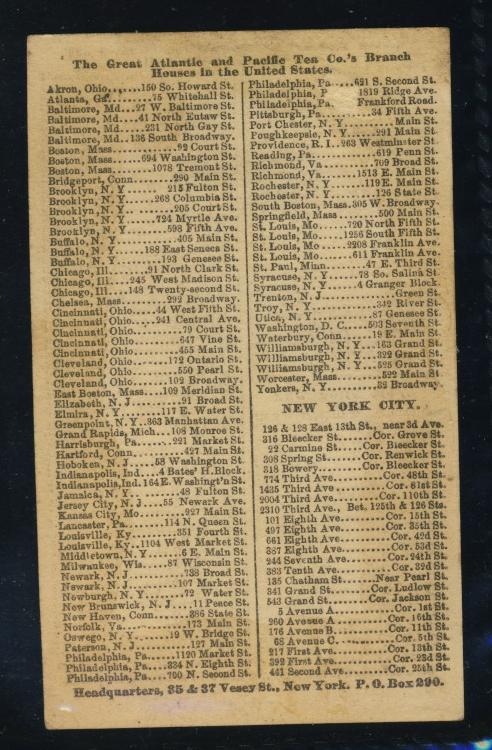 The Great Atlantic and Pacific Tea Co.'s Branch
Houses in the United States.
Akron, Ohio......150 So. Howard St.
Atlanta, Ga.......75 Whitehall St.
Baltimore, Md...27 W. Baltimore St.
Baltimore, Md....41 North Eutaw St.
Baltimore, Md....231 North Gay St.
Baltimore, Md..136 South Broadway.
Boston, Mass..........92 Court St.
Boston, Mass......694 Washington St.
Boston, Mass.......1078 Tremont St.
Bridgeport, Conn........290 Main St.
Brooklyn, N. Y.......215 Fulton St.
Brooklyn, N. Y.....268 Columbia St.
Brooklyn, N. Y........205 Court St.
Brooklyn, N. Y......724 Myrtle Ave.
Brooklyn, N. Y.......598 Fifth Ave.
Buffalo, N. Y..........405 Main St.
Buffalo, N. Y.....188 East Seneca St.
Buffalo, N. Y.......193 Genesee St.
Chicago, Ill.......91 North Clark St.
Chicago, Ill....245 West Madison St.
Chicago, Ill....148 Twenty-second St.
Chelsea, Mass........292 Broadway.
Cincinnati, Ohio....44 West Fifth St.
Cincinnati, Ohio....241 Central Ave.
Cincinnati, Ohio........79 Court St.
Cincinnati, Ohio........647 Vine St.
Cincinnati, Ohio........455 Main St.
Cleveland, Ohio......172 Ontario St.
Cleveland, Ohio........550 Pearl St.
Cleveland, Ohio......102 Broadway.
East Boston, Mass...109 Meridian St.
Elizabeth, N. J..........91 Broad St.
Elmira, N. Y.......117 E. Water St.
Greenpoint, N. Y..363 Manhattan Ave.
Grand Rapids, Mich...108 Monroe St.
Harrisburg, Pa.......221 Market St.
Hartford, Conn.........427 Main St.
Hoboken, N. J.....58 Washington St.
Indianapolis, Ind....4 Bates' H. Block.
Indianapolis, Ind. 164 E. Washingt'n St.
Jamaica, N. Y..........48 Fulton St.
Jersey City, N. J....55 Newark Ave.
Kansas City, Mo.......927 Main St.
Lancaster, Pa.......114 N. Queen St.
Louisville, Ky.......351 Fourth St.
Louisville, Ky...1104 West Market St.
Middletown, N. Y.......6 E. Main St.
Milwaukee, Wis.....87 Wisconsin St.
Newark, N. J..........738 Broad St.
Newark, N. J.........107 Market St.
Newburg, N. Y........72 Water St.
New Brunswick, N. J....11 Peace St.
New Haven, Conn........386 State St.
Norfolk, Va............173 Main St.
Oswego, N. Y......19 W. Bridge St.
Paterson, N. J.........127 Main St.
Philadelphia, Pa.....1120 Market St.
Philadelphia, Pa....334 N. Eighth St.
Philadelphia, Pa....700 N. Second St.
Philadelphia, Pa....621 S. Second St.
Philadelphia, P      1819 Ridge Ave.
Philadelphia, Pa.   Frankford Road.
Pittsburgh, Pa.........34 Fifth Ave.
Port Chester, N. Y........Main St.
Poughkeepsie, N. Y.....291 Main St.
Providence, R. I..263 Westminster St.
Reading, Pa............619 Penn St.
Richmond, Va.........709 Broad St.
Richmond, Va.......1513 E. Main St.
Rochester, N. Y......119 E. Main St.
Rochester, N. Y........126 State St.
South Boston, Mass. 305 W. Broadway.
Springfield, Mass.......500 Main St.
St. Louis, Mo......720 North Fifth St.
St. Louis, Mo.....1256 South Fifth St.
St. Louis, Mo.....2208 Franklin Ave.
St. Louis, Mo......611 Franklin Ave.
St. Paul, Minn.......47 E. Third St.
Syracuse, N. Y......78 So. Salina St.
Syracuse, N. Y......4 Granger Block.
Trenton, N. J............Green St.
Troy, N. Y............342 River St.
Utica, N. Y..........87 Genesee St.
Washington, D. C.....503 Seventh St.
Waterbury, Conn......19 E. Main St.
Williamsburgh, N. Y....163 Grand St.
Williamsburgh, N. Y....322 Grand St.
Williamsburgh, N. Y....525 Grand St.
Worcester, Mass........522 Main St.
Yonkers, N. Y..........32 Broadway.
NEW YORK CITY.
126 & 128 East 13th St., near 3d Ave.
316 Bleecker St.......Cor. Grove St.
22 Carmine St.....Cor. Bleecker St.
308 Spring St......Cor. Renwick St.
318 Bowery........Cor. Bleecker St.
774 Third Ave........Cor. 48th St.
1435 Third Ave........Cor. 81st St.
2004 Third Ave.......Cor. 110th St.
2310 Third Ave., Bet. 125th & 126 Sts.
101 Eighth Ave........Cor. 15th St.
497 Eighth Ave........Cor. 35th St.
661 Eighth Ave........Cor. 42d St.
887 Eighth Ave........Cor. 53d St.
244 Seventh Ave.......Cor. 24th St.
383 Tenth Ave.........Cor. 32d St.
135 Chatham St.......Near Pearl St.
341 Grand St........Cor. Ludlow St.
543 Grand St.......Cor. Jackson St.
5 Avenue A...........Cor. 1st St.
260 Avenue A..........Cor. 16th St.
176 Avenue B..........Cor. 11th St.
68 Avenue C...........Cor. 5th St.
217 First Ave.........Cor. 13th St.
392 First Ave.........Cor. 23d St.
441 Second Ave........Cor. 25th St.
Headquarters, 35 & 37 Vesey St., New York. P. O. Box 290.